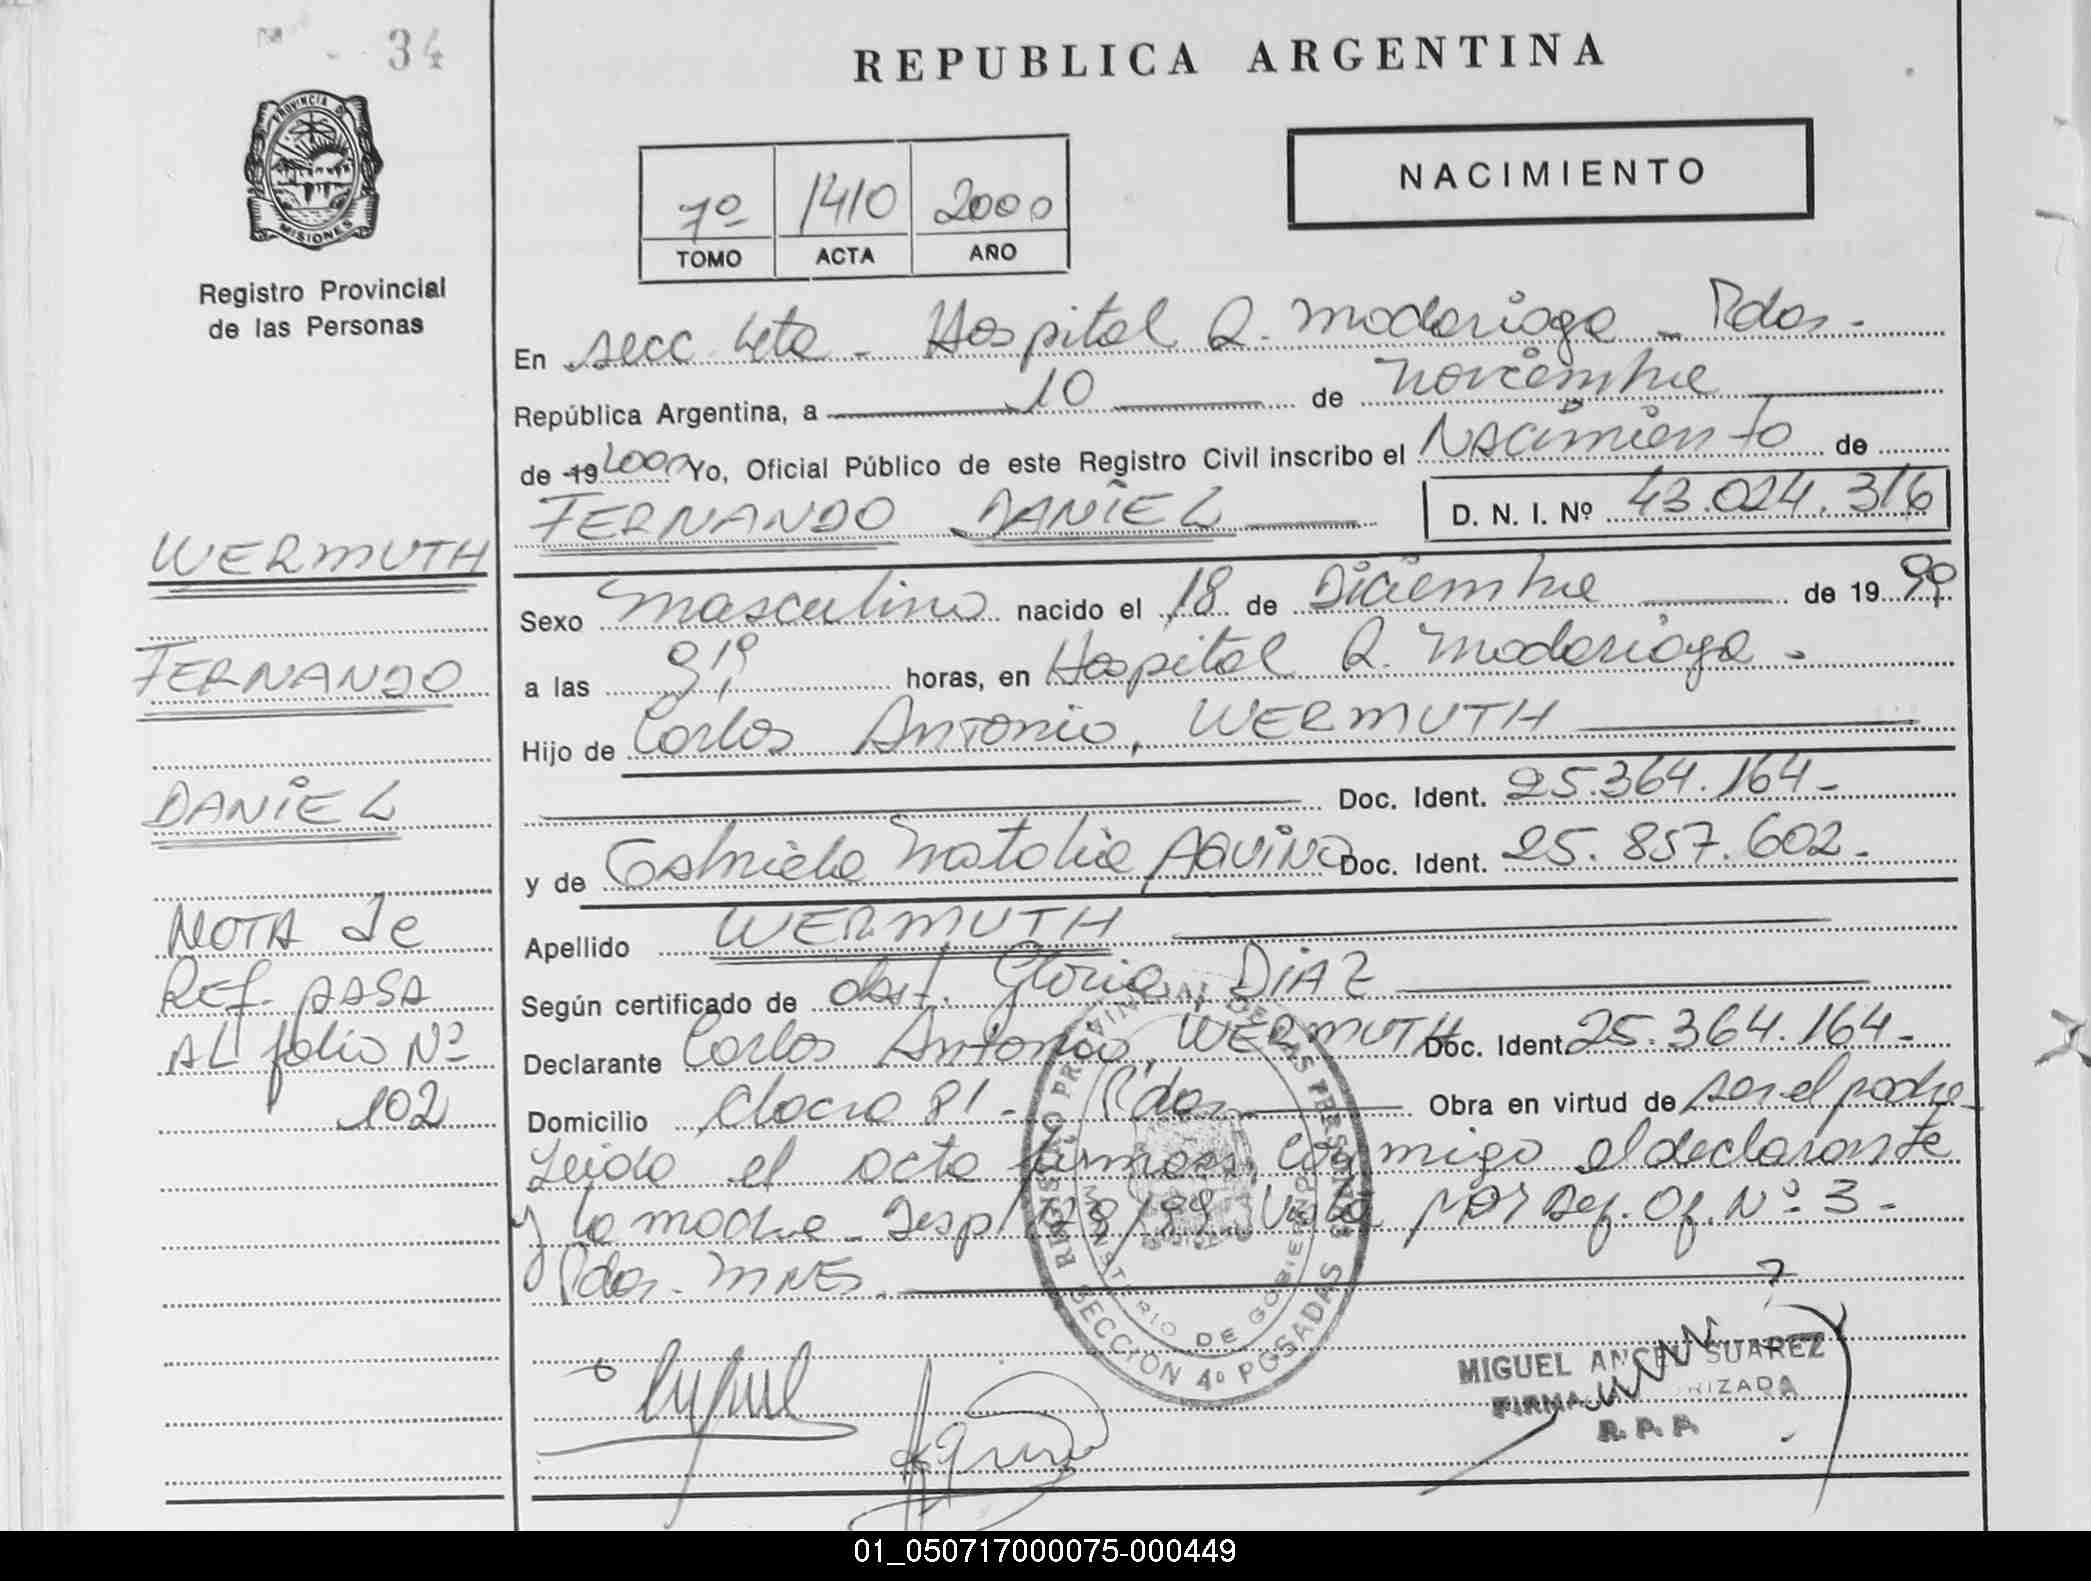 34
REPUBLICA ARGENTINA
NACIMIENTO
7º 1410 2000
TOMO ACTA AÑO
PROVINCIA D
MISIONES
Registro Provincial
de las Personas
En secc 4ta - Hospital R. Madariaga - Pdas -
República Argentina, a 10 de Noviembre
de 19 2000 Yo, Oficial Público de este Registro Civil inscribo el Nacimiento de
FERNANDO DANIEL D. N. I. Nº 43.024.316
Sexo masculino nacido el 18 de Diciembre de 19 99
a las horas, en Hospital R. Madariaga -
Hijo de Carlos Antonio, WERMUTH
Doc. Ident. 25.364.164-
y de Gabriela Natalia AQUINO Doc. Ident. 25.857.602-
Apellido WERMUTH
Según certificado de obst. Gloria, DIAZ
Declarante Carlos Antonio, WERMUTH Doc. Ident. 25.364.164-
Domicilio chacra 81 - Pdas Obra en virtud de ser el padre -
Leida el acta firman conmigo el declarante
y la madre - Disp 128/99 por Def. Of. Nº 3 -
Pdas. MNES.
WERMUTH
FERNANDO
DANIEL
NOTA de
REF. PASA
AL folio Nº
102
REGISTRO PROVINCIAL DE LAS PERSONAS
MINISTERIO DE GOBIERNO
SECCION 4º POSADAS
MIGUEL ANGEL SUAREZ
FIRMA AUTORIZADA
R. P. P.
01_050717000075-000449